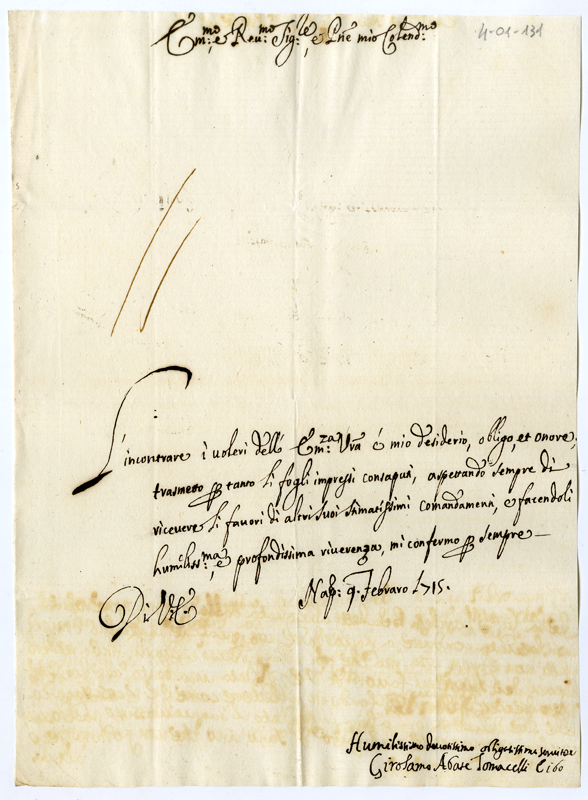 4-01-131
Em:mo e Reu:mo Sig:re e Pne mio Colend:mo
L'incontrare i uoleri dell' Em:za Vra é mio desiderio, obligo, et onore;
trasmetto per tanto li fogli impressi consaputi, aspettando sempre di
riceuere li fauori di altri suoi stimatissimi comandamenti, e facendoli
humiliss:ma, e profondissima riuerenza, mi confermo per sempre —
Di V:E:
Nap: 9. Febraro 1715.
Humilissimo deuotissimo obligatissimo seruitore
Girolamo Abate Tomacelli Cibo